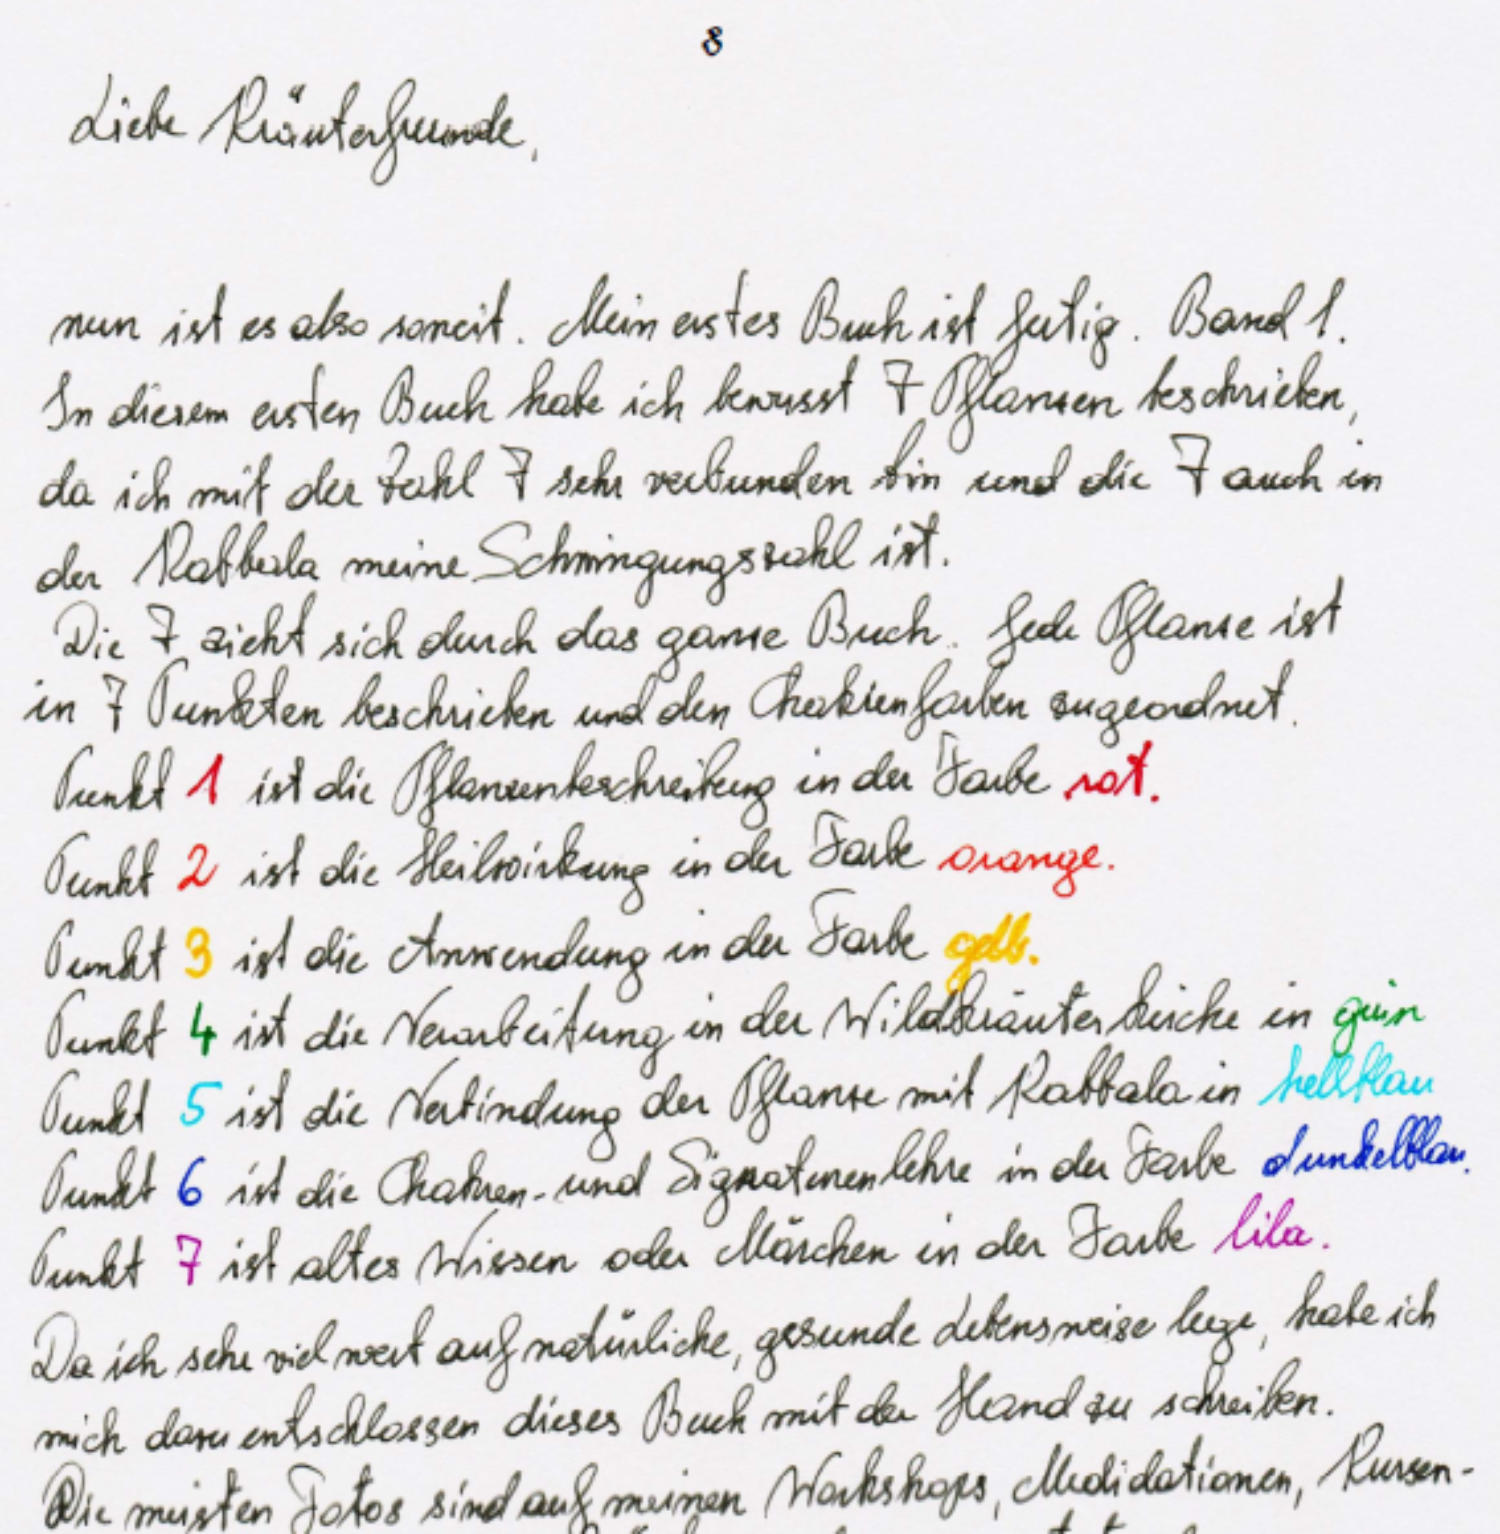 8
Liebe Kräuterfreunde,
nun ist es also soweit. Mein erstes Buch ist fertig. Band 1.
In diesem ersten Buch habe ich bewusst 7 Pflanzen beschrieben,
da ich mit der Zahl 7 sehr verbunden bin und die 7 auch in
der Kabbala meine Schwingungszahl ist.
Die 7 zieht sich durch das ganze Buch. Jede Pflanze ist
in 7 Punkten beschrieben und den Chakrenfarben zugeordnet.
Punkt 1 ist die Pflanzenbeschreibung in der Farbe rot.
Punkt 2 ist die Heilwirkung in der Farbe orange.
Punkt 3 ist die Anwendung in der Farbe gelb.
Punkt 4 ist die Verarbeitung in der Wildkräuterküche in grün
Punkt 5 ist die Verbindung der Pflanze mit Kabbala in hellblau
Punkt 6 ist die Chakren- und Signaturenlehre in der Farbe dunkelblau.
Punkt 7 ist altes Wissen oder Märchen in der Farbe lila.
Da ich sehr viel wert auf natürliche, gesunde Lebensweise lege, habe ich
mich dazu entschlossen dieses Buch mit der Hand zu schreiben.
Die meisten Fotos sind auf meinen Workshops, Medidationen, Kursen-